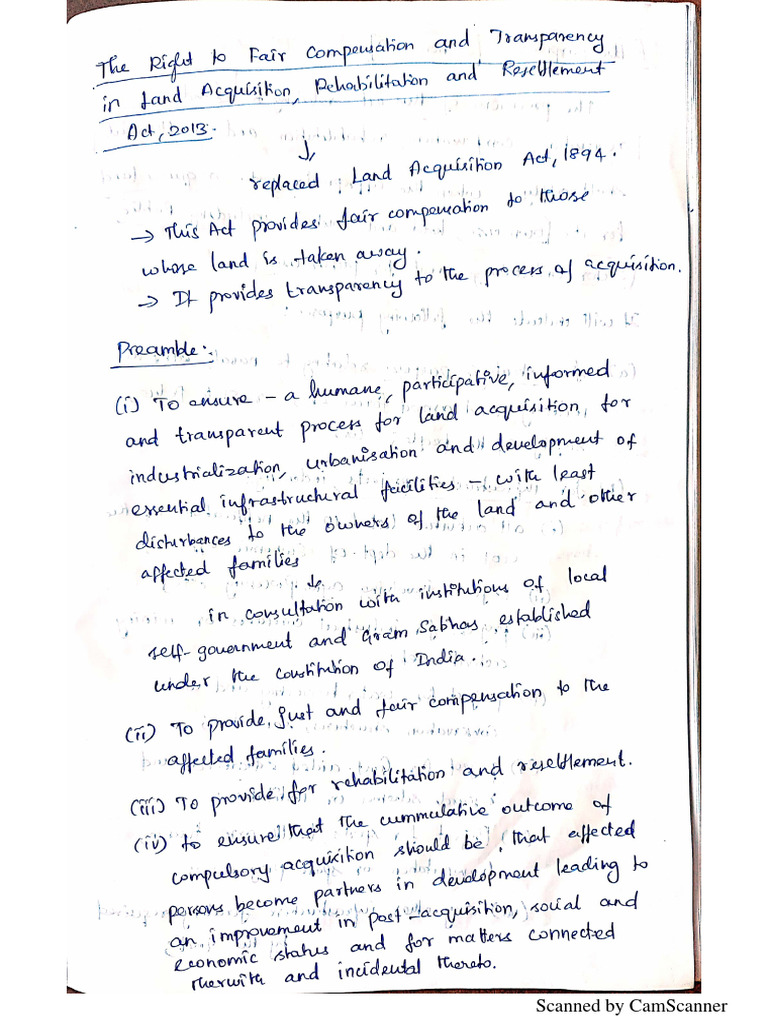 The Right to Fair Compensation and Transparency
in Land Acquisition, Rehabilitation and Resettlement
Act, 2013.
↓
replaced Land Acquisition Act, 1894.
→ This Act provides fair compensation to those
whose land is taken away.
→ It provides transparency to the process of acquisition.
Preamble:
(i) To ensure – a humane, participative, informed
and transparent process for land acquisition, for
industrialization, urbanisation and development of
essential infrastructural facilities – with least
disturbances to the owners of the land and other
affected families
↓
in consultation with institutions of local
self-government and Gram Sabhas established
under the Constitution of India.
(ii) To provide just and fair compensation to the
affected families.
(iii) To provide for rehabilitation and resettlement.
(iv) to ensure that the cummulative outcome of
compulsory acquisition should be, that affected
persons become partners in development leading to
an improvement in post-acquisition, social and
economic status and for matters connected
therwith and incidental thereto.
Scanned by CamScanner